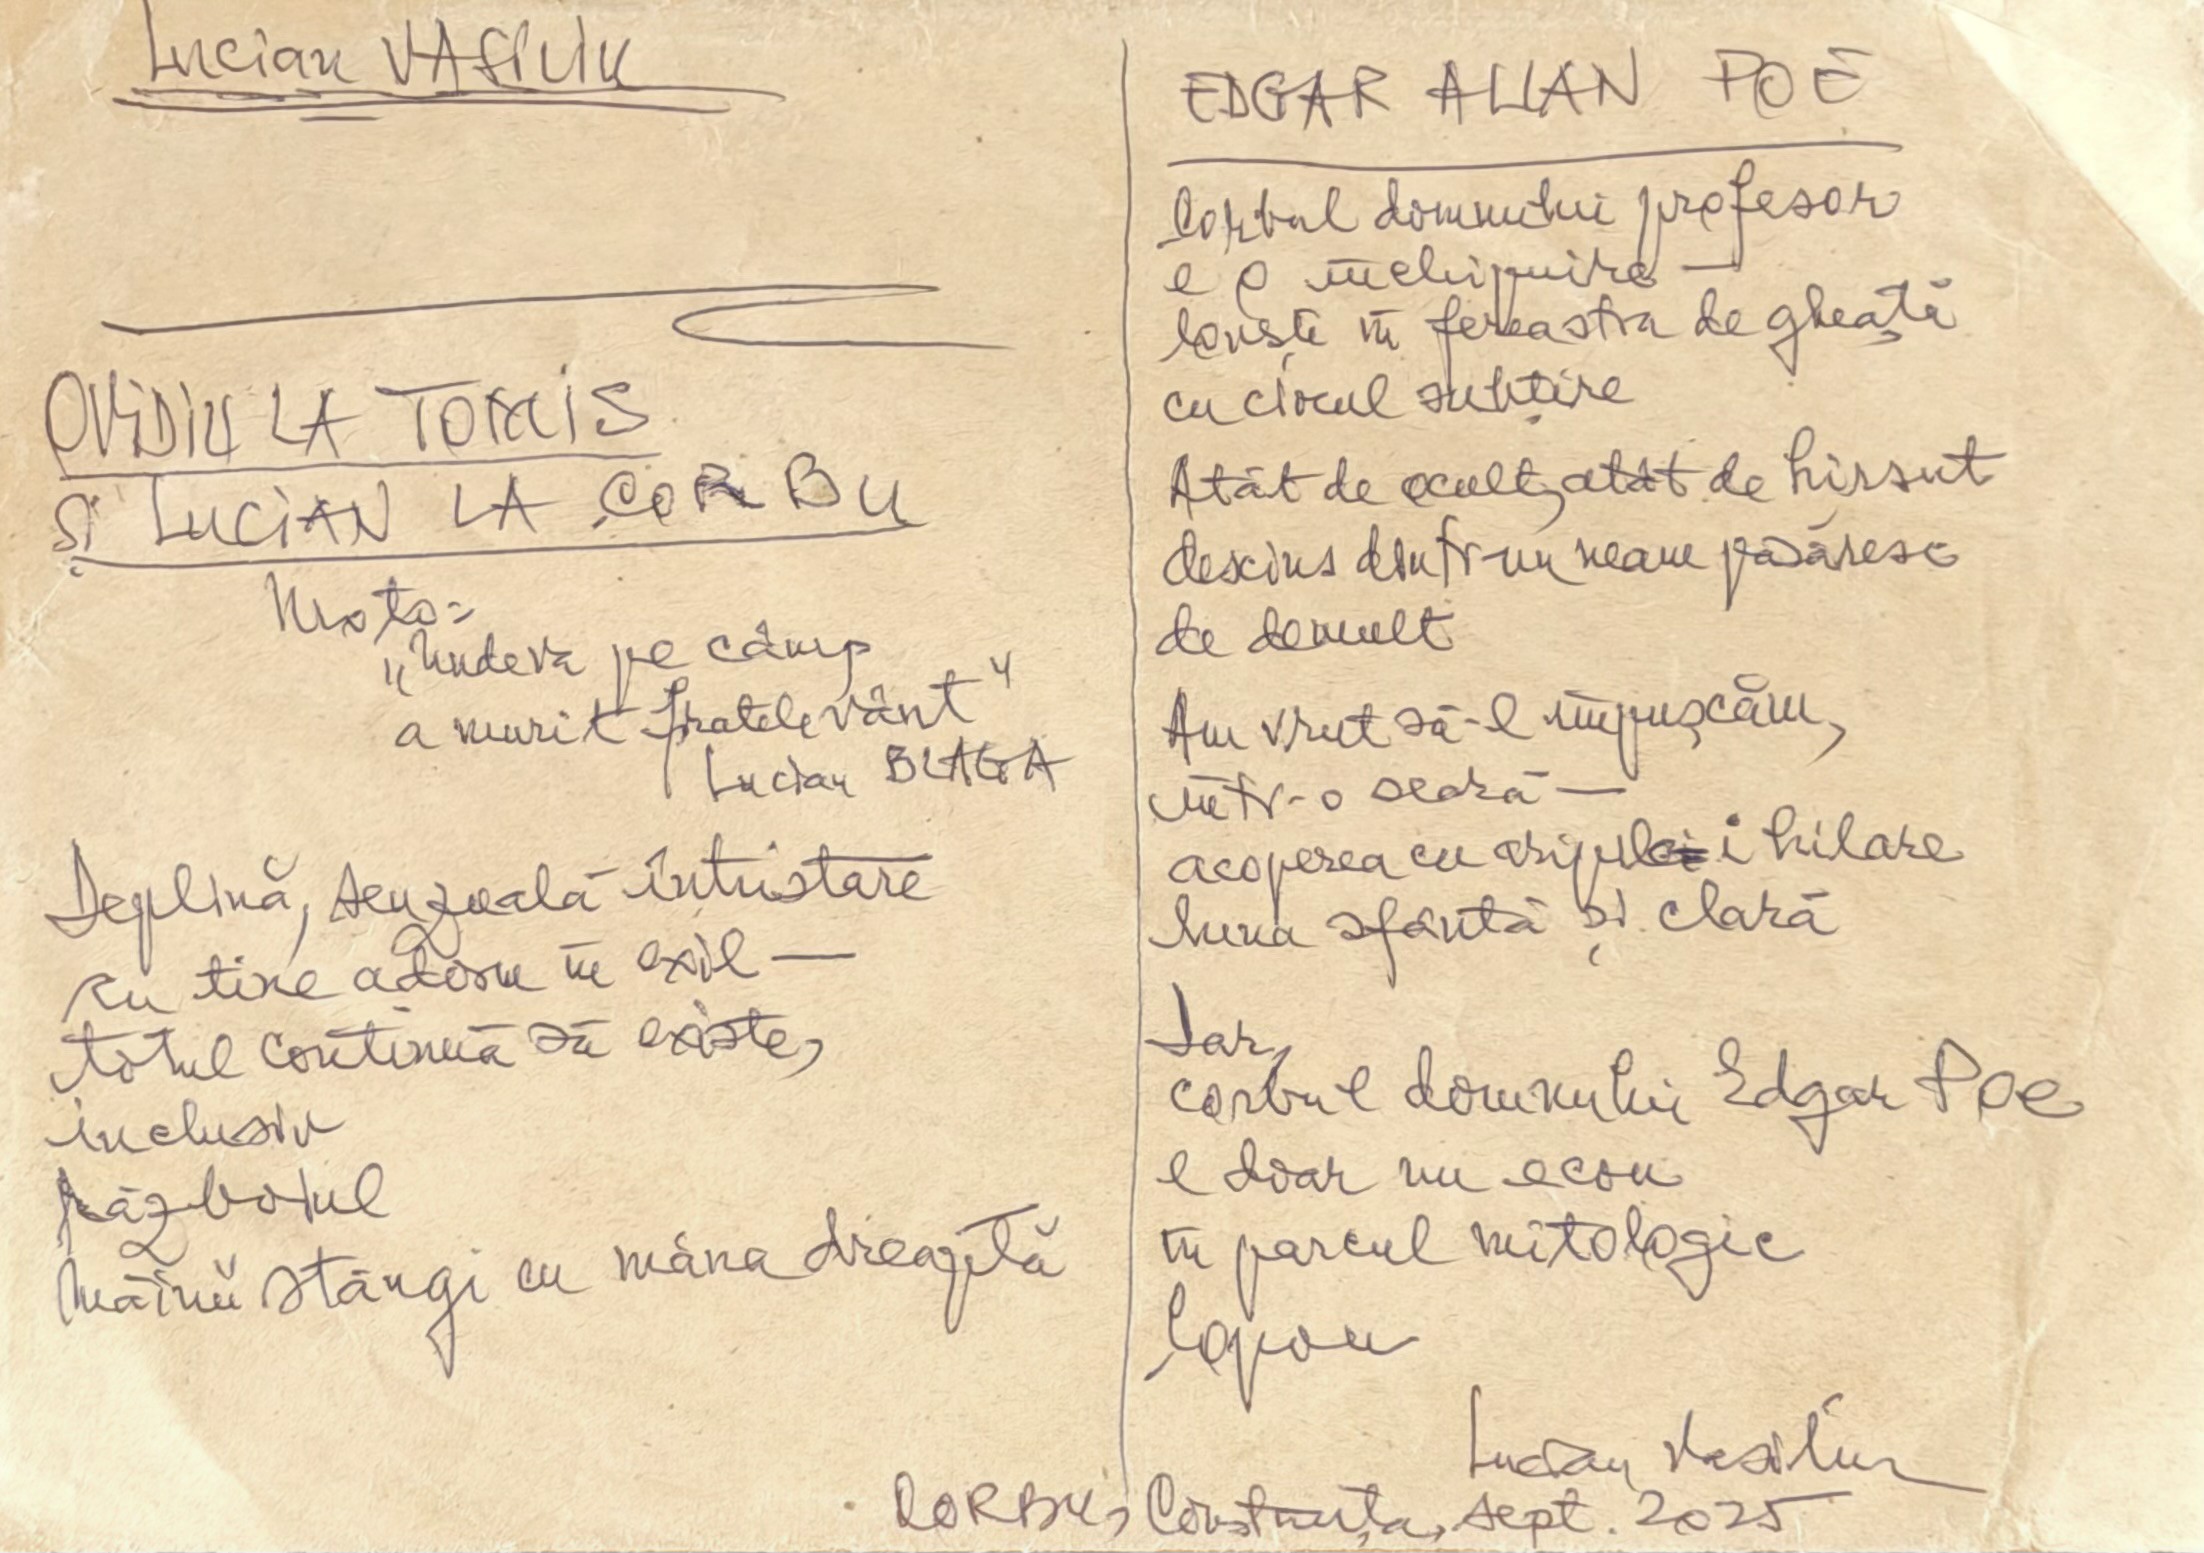 Lucian VASILIU
OVIDIU LA TOMIS
ȘI LUCIAN LA CORBU
Moto:
„Undeva pe câmp
a murit fratele vânt”
Lucian BLAGA
Deplină, senzuală întristare
cu tine adorm în exil —
totul continuă să existe,
inclusiv
războiul
mâinii stângi cu mâna dreaptă
EDGAR ALLAN POE
Corbul domnului profesor
e o închipuire —
lovește în fereastra de gheață
cu ciocul subțire
Atât de ocult, atât de hirsut
descins dintr-un neam păsăresc
de demult
Am vrut să-l împușcăm,
într-o seară —
acoperea cu aripile-i hilare
luna sfântă și clară
Dar,
corbul domnului Edgar Poe
e doar un ecou
în parcul mitologic
Copou
Lucian Vasiliu
CORBU, Constanța, sept. 2025